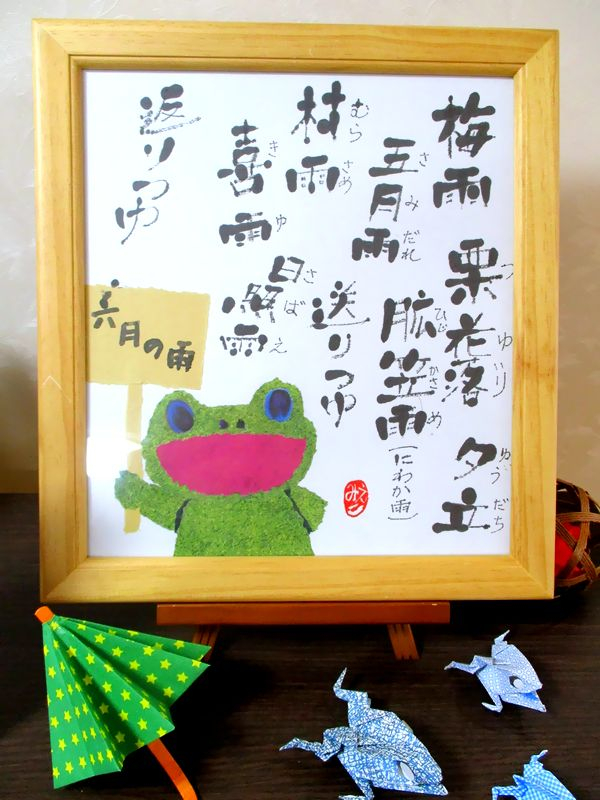 梅雨
栗花落
つゆいり
夕立
ゆうだち
五月雨
さみだれ
肱笠雨
ひじかさめ
(にわか雨)
村雨
むらさめ
送りつゆ
喜雨
きゆ
日照雨
さばえ
返りつゆ
六月の雨